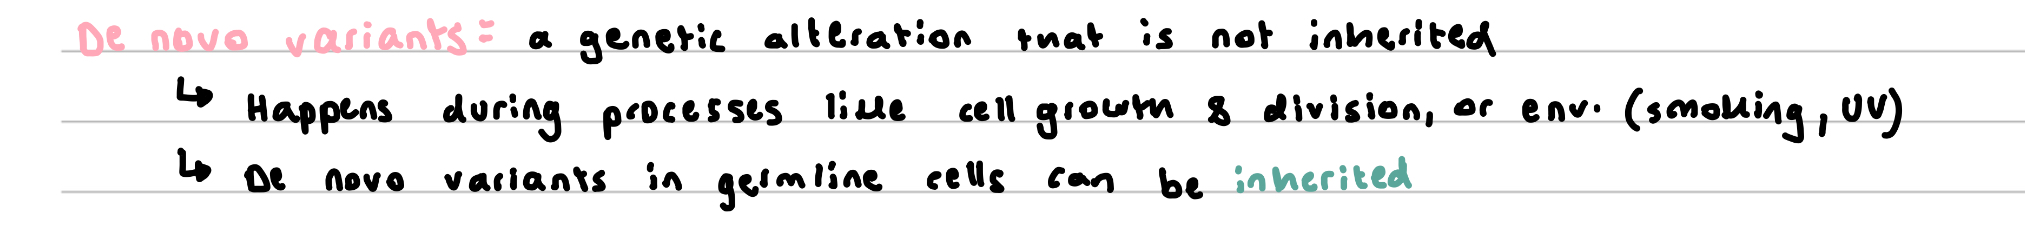 De novo variants = a genetic alteration that is not inherited
↳ Happens during processes like cell growth & division, or env. (smoking, UV)
↳ De novo variants in germline cells can be inherited